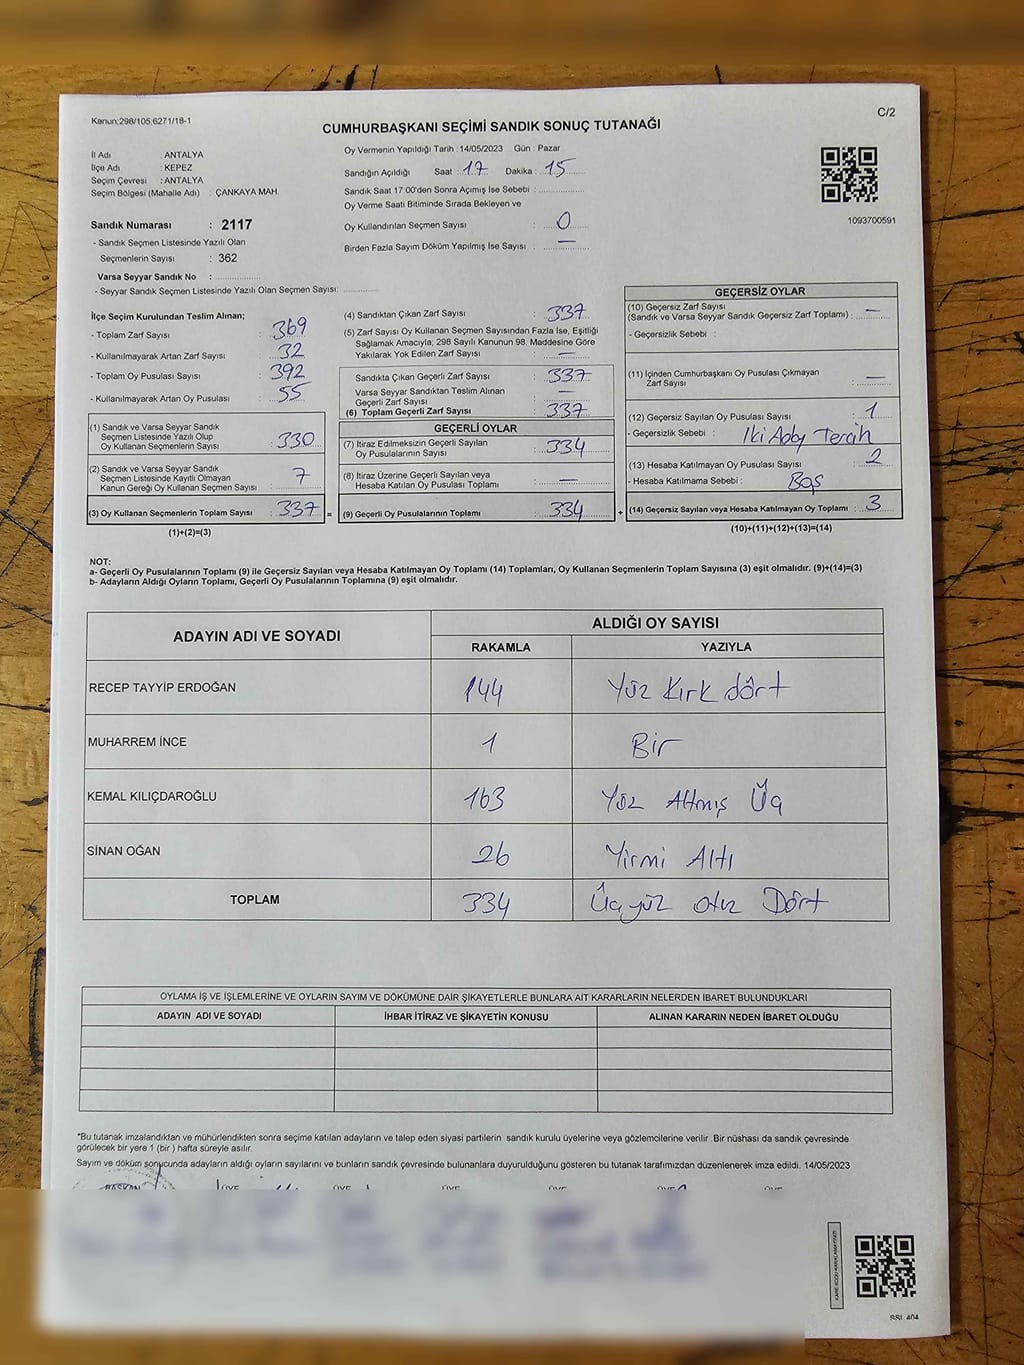 Kanun:298/105,6271/18-1
C/2
CUMHURBAŞKANI SEÇİMİ SANDIK SONUÇ TUTANAĞI
İl Adı : ANTALYA
İlçe Adı : KEPEZ
Seçim Çevresi : ANTALYA
Seçim Bölgesi (Mahalle Adı) : ÇANKAYA MAH.
Sandık Numarası : 2117
- Sandık Seçmen Listesinde Yazılı Olan
Seçmenlerin Sayısı : 362
Varsa Seyyar Sandık No :
- Seyyar Sandık Seçmen Listesinde Yazılı Olan Seçmen Sayısı:
Oy Vermenin Yapıldığı Tarih :14/05/2023 Gün : Pazar
Sandığın Açıldığı Saat : 17 Dakika : 15
Sandık Saat 17:00'den Sonra Açımış İse Sebebi :
Oy Verme Saati Bitiminde Sırada Bekleyen ve
Oy Kullandırılan Seçmen Sayısı : 0
Birden Fazla Sayım Döküm Yapılmış İse Sayısı : —
1093700591
İlçe Seçim Kurulundan Teslim Alınan;
- Toplam Zarf Sayısı : 369
- Kullanılmayarak Artan Zarf Sayısı : 32
- Toplam Oy Pusulası Sayısı : 392
- Kullanılmayarak Artan Oy Pusulası : 55
(1) Sandık ve Varsa Seyyar Sandık
Seçmen Listesinde Yazılı Olup
Oy Kullanan Seçmenlerin Sayısı : 330
(2) Sandık ve Varsa Seyyar Sandık
Seçmen Listesinde Kayıtlı Olmayan
Kanun Gereği Oy Kullanan Seçmen Sayısı : 7
(3) Oy Kullanan Seçmenlerin Toplam Sayısı : 337 =
(1)+(2)=(3)
(4) Sandıktan Çıkan Zarf Sayısı : 337
(5) Zarf Sayısı Oy Kullanan Seçmen Sayısından Fazla İse, Eşitliği
Sağlamak Amacıyla; 298 Sayılı Kanunun 98. Maddesine Göre
Yakılarak Yok Edilen Zarf Sayısı : —
Sandıkta Çıkan Geçerli Zarf Sayısı : 337
Varsa Seyyar Sandıktan Teslim Alınan
Geçerli Zarf Sayısı : —
(6) Toplam Geçerli Zarf Sayısı : 337
GEÇERLİ OYLAR
(7) İtiraz Edilmeksizin Geçerli Sayılan
Oy Pusulalarının Sayısı : 334
(8) İtiraz Üzerine Geçerli Sayılan veya
Hesaba Katılan Oy Pusulası Toplamı : —
(9) Geçerli Oy Pusulalarının Toplamı : 334 +
GEÇERSİZ OYLAR
(10) Geçersiz Zarf Sayısı
(Sandık ve Varsa Seyyar Sandık Geçersiz Zarf Toplamı) : —
- Geçersizlik Sebebi :
(11) İçinden Cumhurbaşkanı Oy Pusulası Çıkmayan
Zarf Sayısı : —
(12) Geçersiz Sayılan Oy Pusulası Sayısı : 1
- Geçersizlik Sebebi : İki Aday Tercih
(13) Hesaba Katılmayan Oy Pusulası Sayısı : 2
- Hesaba Katılmama Sebebi : Boş
(14) Geçersiz Sayılan veya Hesaba Katılmayan Oy Toplamı : 3
(10)+(11)+(12)+(13)=(14)
NOT:
a- Geçerli Oy Pusulalarının Toplamı (9) ile Geçersiz Sayılan veya Hesaba Katılmayan Oy Toplamı (14) Toplamları, Oy Kullanan Seçmenlerin Toplam Sayısına (3) eşit olmalıdır. (9)+(14)=(3)
b- Adayların Aldığı Oyların Toplamı, Geçerli Oy Pusulalarının Toplamına (9) eşit olmalıdır.
ADAYIN ADI VE SOYADI
ALDIĞI OY SAYISI
RAKAMLA YAZIYLA
RECEP TAYYİP ERDOĞAN 144 Yüz Kırk dört
MUHARREM İNCE 1 Bir
KEMAL KILIÇDAROĞLU 163 Yüz Altmış Üç
SİNAN OĞAN 26 Yirmi Altı
TOPLAM 334 Üçyüz otuz Dört
OYLAMA İŞ VE İŞLEMLERİNE VE OYLARIN SAYIM VE DÖKÜMÜNE DAİR ŞİKAYETLERLE BUNLARA AİT KARARLARIN NELERDEN İBARET BULUNDUKLARI
ADAYIN ADI VE SOYADI İHBAR İTİRAZ VE ŞİKAYETİN KONUSU ALINAN KARARIN NEDEN İBARET OLDUĞU
*Bu tutanak imzalandıktan ve mühürlendikten sonra seçime katılan adayların ve talep eden siyasi partilerin sandık kurulu üyelerine veya gözlemcilerine verilir .Bir nüshası da sandık çevresinde
görülecek bir yere 1 (bir ) hafta süreyle asılır.
Sayım ve döküm sonucunda adayların aldığı oyların sayılarını ve bunların sandık çevresinde bulunanlara duyurulduğunu gösteren bu tutanak tarafımızdan düzenlenerek imza edildi. 14/05/2023
BAŞKAN ÜYE ÜYE ÜYE ÜYE ÜYE ÜYE